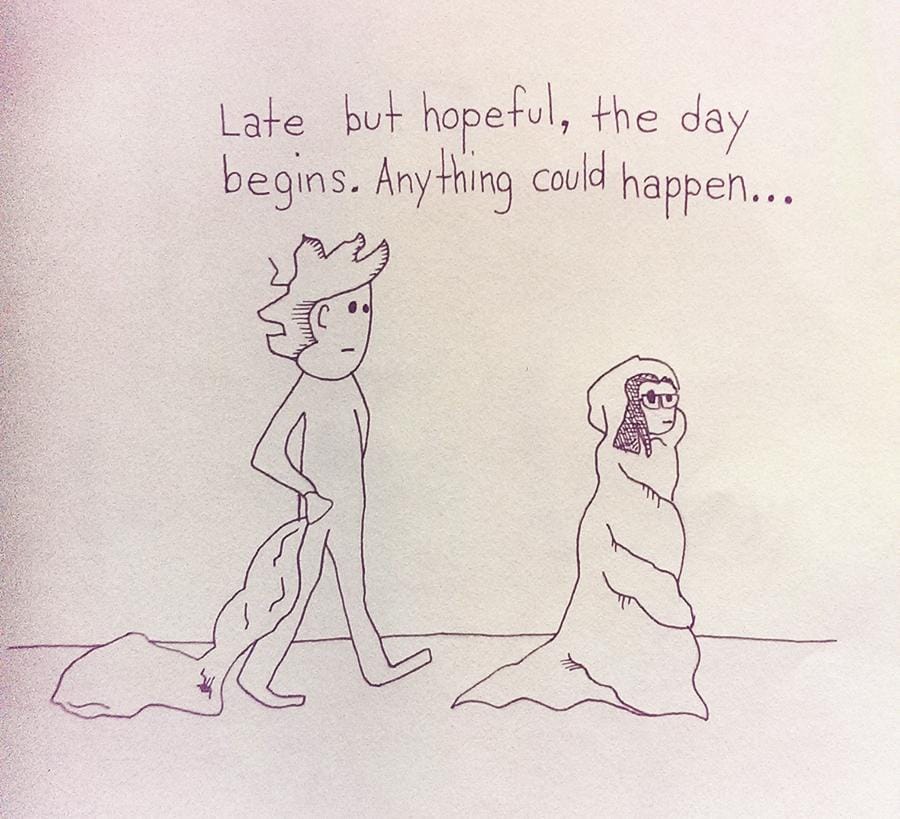 Late but hopeful, the day
begins. Anything could happen...